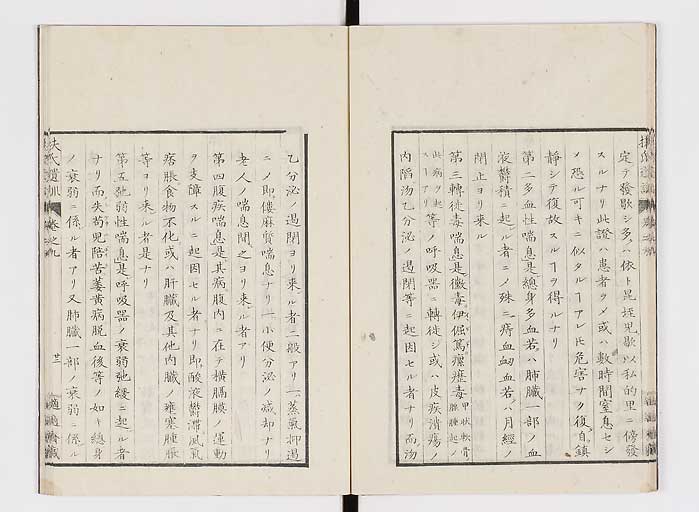 定テ發歇シ多クハ依卜昆垤児歇以私的里ニ傍發
スルナリ此證ハ患者ヲメ或ハ數時間窒息セシ
メ恐ル可キニ似タルヿアレ𪜈危害ナク復自鎮
靜シテ復故スルヿヲ得ルナリ
第二多血性喘息是總身多血若ハ肺臓一部ノ血
液欝積ニ起ル者ニノ殊ニ痔血衂血若ハ月經ノ
閉止ヨリ來ル
第三轉徙毒喘息黴毒伊偃篤瘰癧毒甲状軟骨腺腫起ノ
此病ヲ起スヿアリ等ノ呼吸器ニ轉徙シ或ハ皮疾潰瘍ノ
内陷汤乙分泌ノ遏閉等ニ起因セル者ナリ而汤
乙分泌ノ遏閉ヨリ來ル者二般アリ一蒸氣抑遏
ニノ即僂麻質喘息ナリ一小便分泌ノ減却ナリ
老人ノ喘息間之ヨリ來ル者アリ
第四腹疾喘息是其病腹内ニ在テ横膈膜ノ運動
ヲ支障スルニ起因セル者ナリ即酸液欝滞風氣
痞脹食物不化或ハ肝臓及其他内臓ノ壅塞腫脹
等ヨリ來ル者是ナリ
第五弛弱性喘息是呼吸器ノ衰弱弛緩ニ起ル者
ナリ而失苟児陪苦萎黄病脱血後等ノ如キ總身
ノ衰弱ニ係ル者アリ又肺臓一部ノ衰弱ニ係ル
扶氏遺訓 卷之九 廿二 適適齋藏